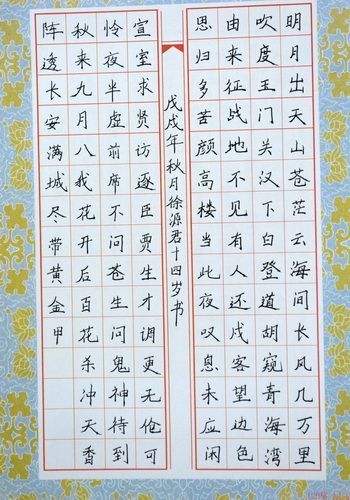 明月出天山苍茫云海间长风几万里
吹度玉门关汉下白登道胡窥青海湾
由来征战地不见有人还戍客望边色
思归多苦颜高楼当此夜叹息未应闲
戊戌年秋月徐源君十四岁书
宣室求贤访逐臣贾生才调更无伦可
怜夜半虚前席不问苍生问鬼神待到
秋来九月八我花开后百花杀冲天香
阵透长安满城尽带黄金甲